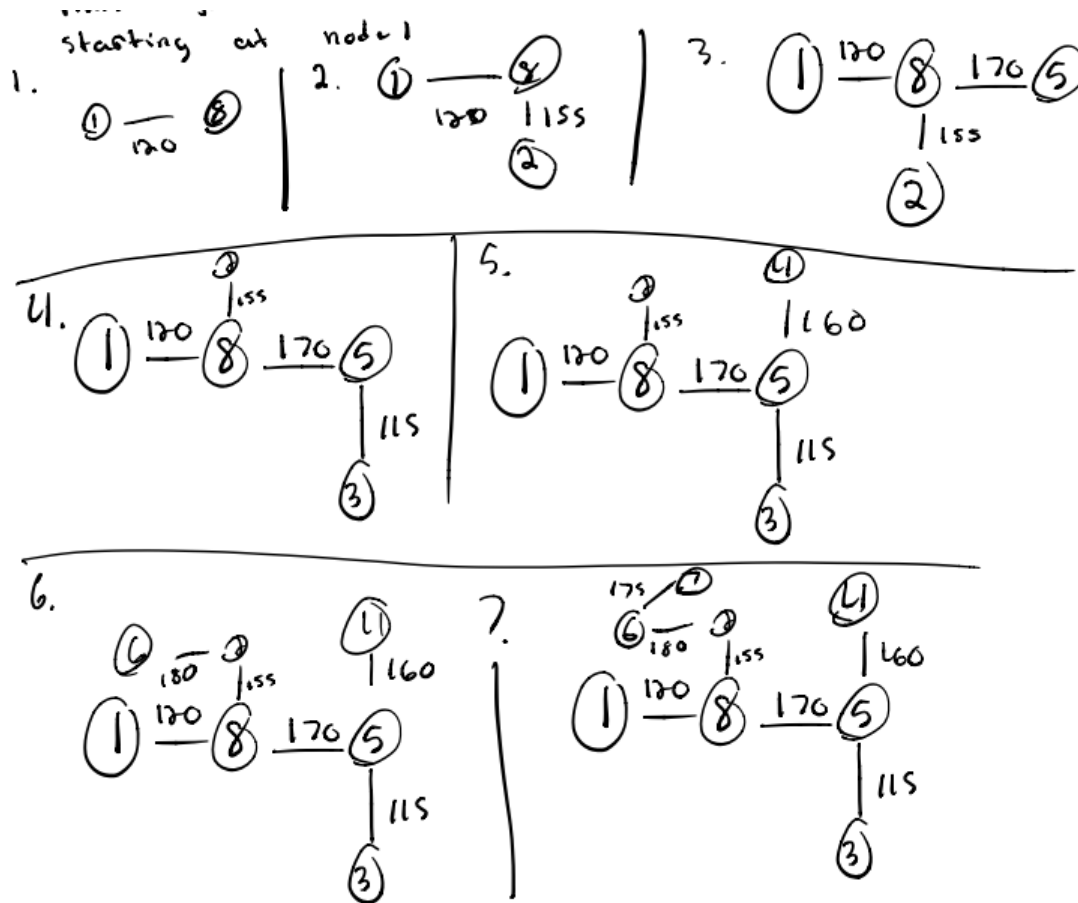 starting at node 1
1.
1 8
120
2.
1 8
120 155
2
3.
1 120 8 170 5
155
2
4.
2
155
1 120 8 170 5
115
3
5.
2 4
155 160
1 120 8 170 5
115
3
6.
6 2 4
180 155 160
1 120 8 170 5
115
3
7.
175 7
6 2 4
180 155 160
1 120 8 170 5
115
3